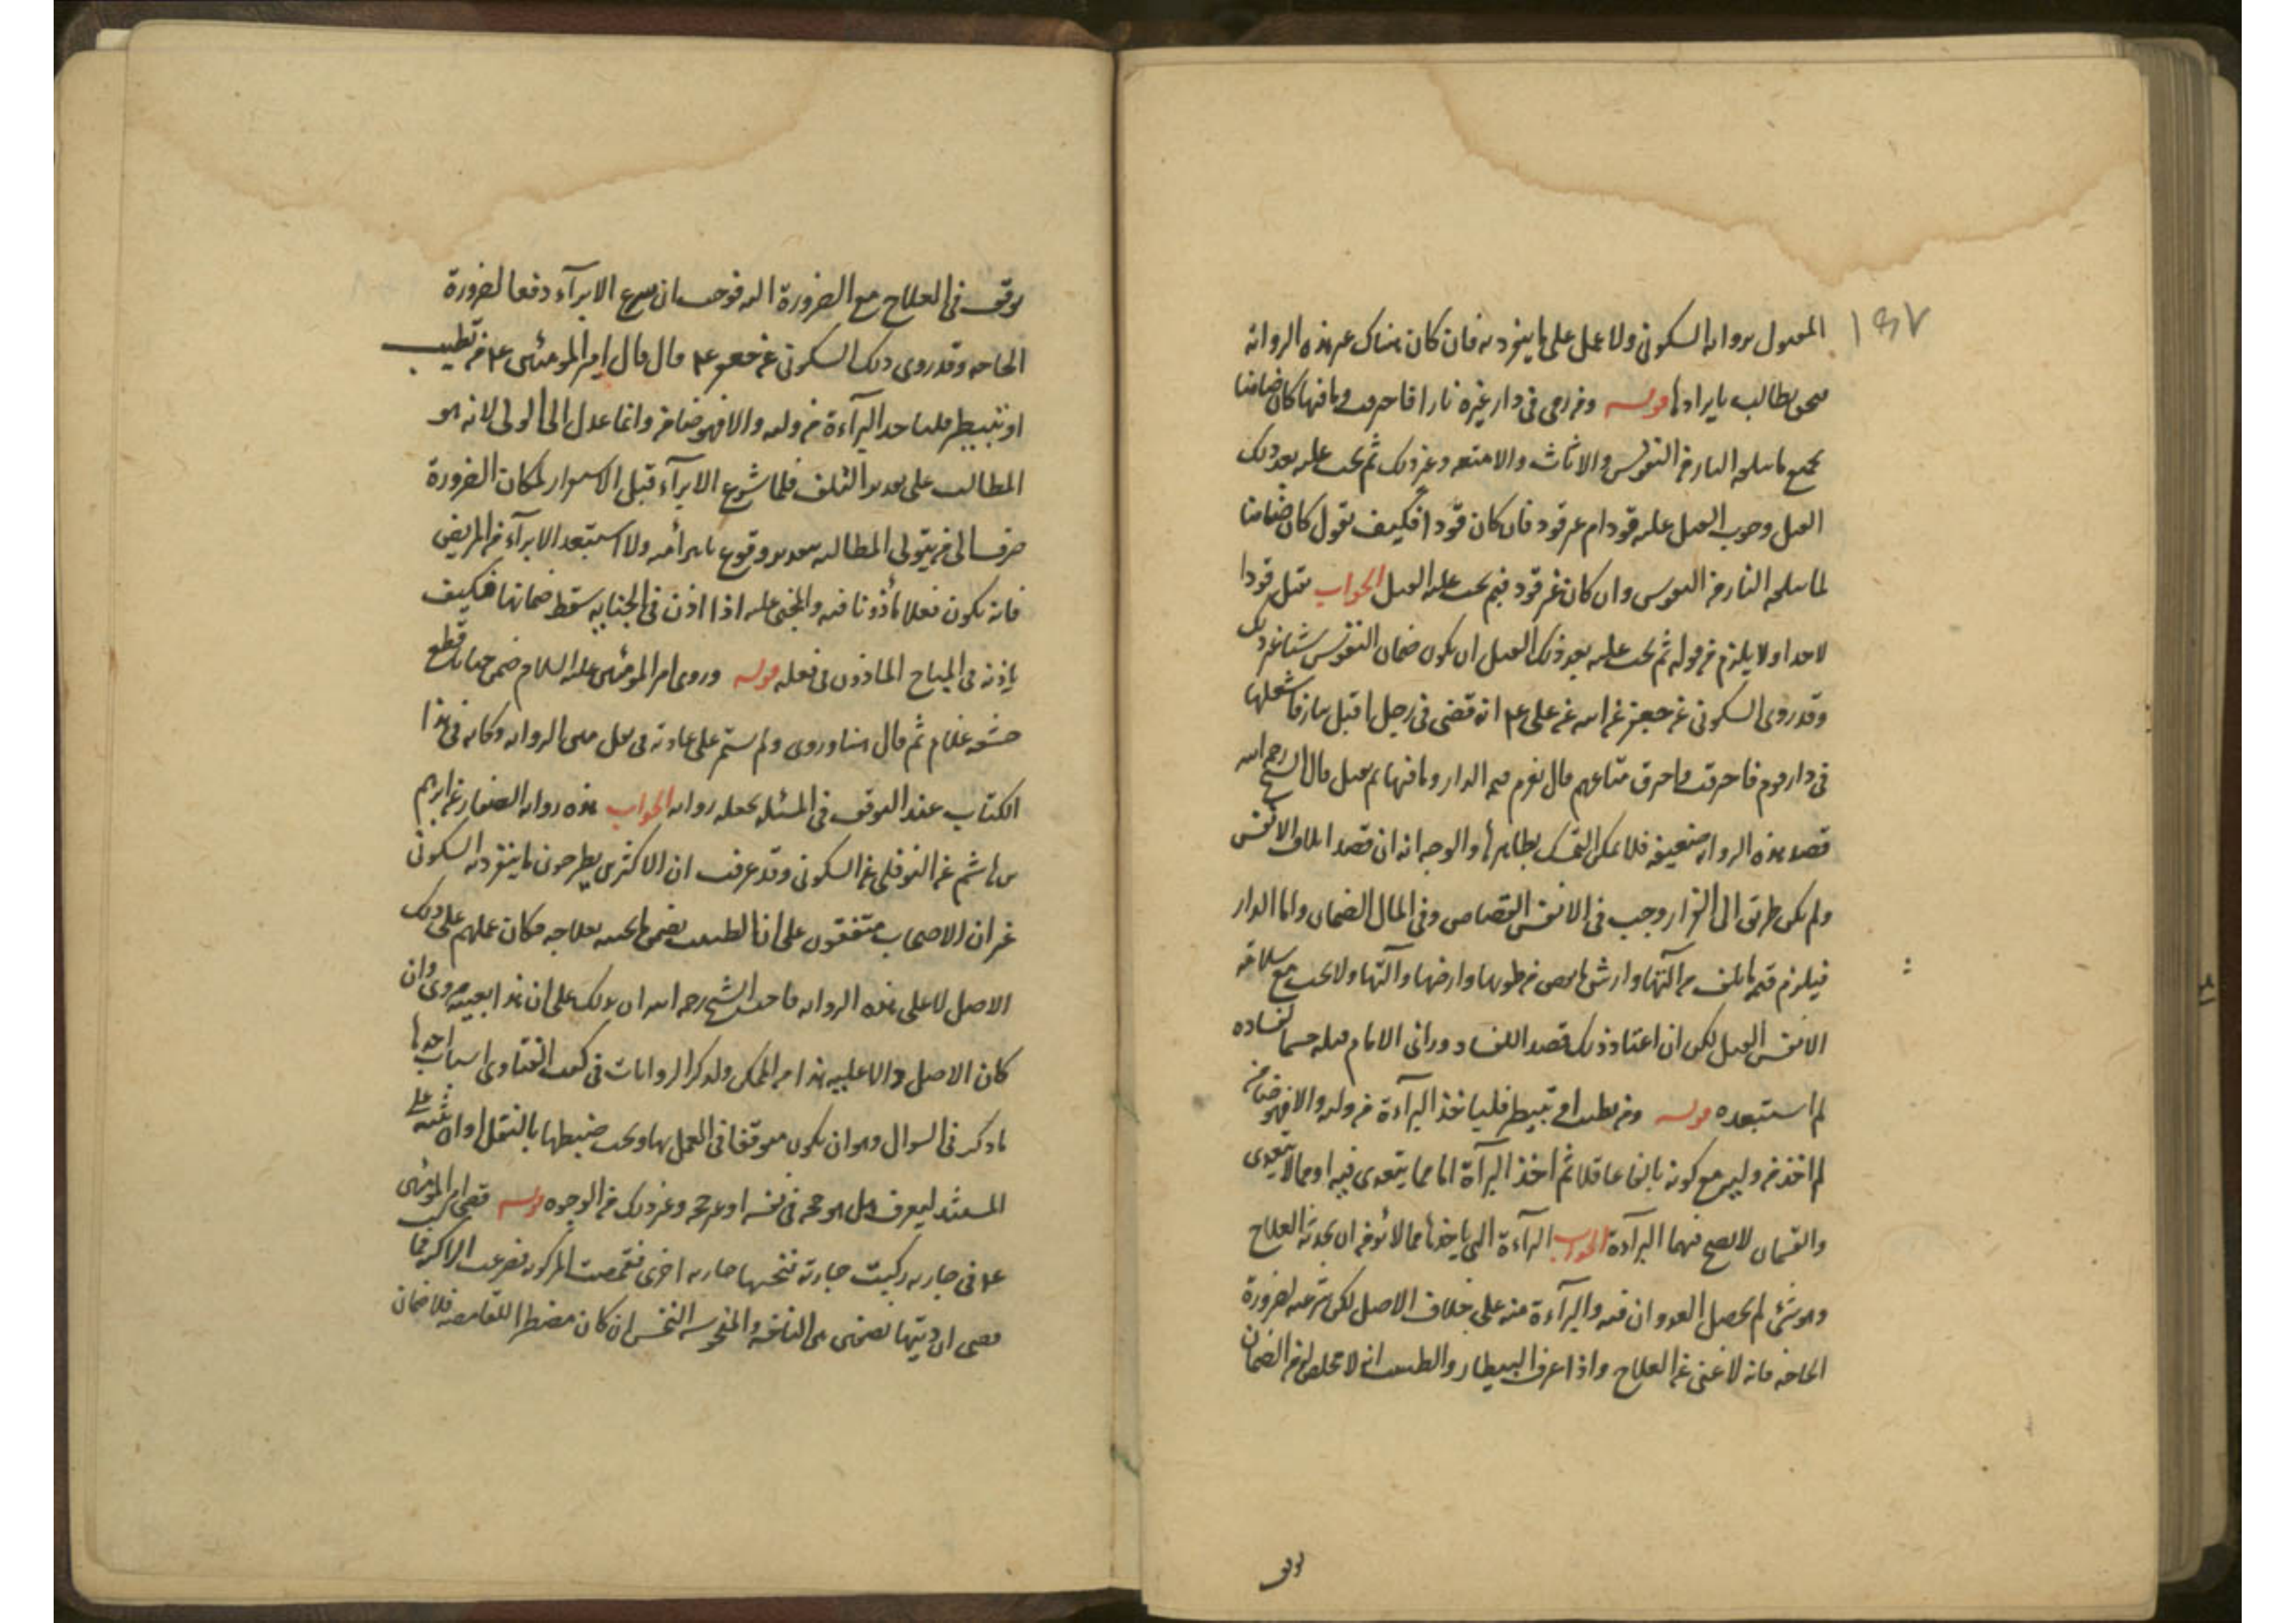 ١٩٧
المعول برواية السكوني ولا عمل على ما ينفرد به فان كان هناك غير هذه الرواية
فنحن نطالب بايرادها قوله ومن رمى في دار غيره نارا فاحرقت وما فيها كان ضامنا
لجميع ما يتلفه النار من النفوس والاثاث والامتعه وغير ذلك ثم يجب عليه بعد ذلك
القتل وجوب القتل عليه قود ام غير قود فان كان قودا فكيف نقول كان ضامنا
لما يتلفه النار من النفوس وان كان غير قود فبم يجب عليه القتل الجواب يقتل قودا
لا حدا ولا يلزم من قوله ثم يجب عليه بعد ذلك القتل ان يكون ضمان النفوس شيئا غير ذلك
وقد روى السكوني عن جعفر عن ابيه عن علي ع انه قضى في رجل اقبل بنار فاشعلها
في دار قوم فاحترقت واحترق متاعهم قال يغرم قيمة الدار وما فيها ثم يقتل قال الشيخ رحمه الله
قصد هذه الرواية ضعيفة فلا يمكن التمسك بظاهرها والوجه انه ان قصد اتلاف الانفس
ولم يكن طريق الى الفرار وجب في الانفس القصاص وفي المال الضمان واما الدار
فيلزم قيمة ما تلف من آلتها وارش ما نقص من طوبها وارضها وآلتها ولا يجب مع سلامة
الانفس القتل لكن ان اعتاد ذلك قصد الفساد وراى الامام قتله حسما لفساده
لم استبعده قوله ومن تطبب او تبيطر فلياخذ البرآءة من وليه والا فهو ضامن
لم اخذ من وليه مع كونه بالغا عاقلا ثم اخذ البرآءة اما مما يتعدى فيه او مما لا يتعدى
والقسمان لا يصح فيهما البرآءة الجواب البرآءة التي ياخذها مما لا يؤمن ان يحدثه العلاج
وهو شئ لم يحصل العدوان فيه والبرآءة منه على خلاف الاصل لكن شرعيه لضرورة
الحاجة فانه لا غنى عن العلاج واذا عرف البيطار والطبيب انه لا تخلص له من الضمان
توقف
توقف في العلاج مع الضرورة اليه فوجب ان يشرع الابرآء دفعا لضرورة
الحاجه وقد روى ذلك السكوني عن جعفر ع قال قال امير المؤمنين ع من تطبب
او تبيطر فلياخذ البرآءة من وليه والا فهو ضامن وانما عدل الى الولي لانه هو
المطالب على تقدير التلف فلما شرع الابرآء قبل الاستقرار لمكان الضرورة
صرف الى من يتولى المطالبه بتقدير وقوع ما يبرأ منه ولا استبعد الابرآء من المريض
فانه يكون فعلا مأذونا فيه والمجني عليه اذا اذن في الجنايه سقط ضمانها فكيف
باذنه في المباح الماذون في فعله قوله وروى امير المؤمنين عليه السلام ضمن ختانا قطع
حشفه غلام ثم قال هنا وروى ولم يستمر على عادته في نقل متن الرواية وكانه في هذا
الكتاب عند التوقف في المسئله يجعله رواية الجواب هذه رواية الصفار عن ابراهيم
بن هاشم عن النوفلي عن السكوني وقد عرفت ان الاكثرين يطرحون ما ينفرد به السكوني
غير ان الاصحاب متفقون على ان الطبيب يضمن ما يجنيه بعلاجه فكان عملهم على ذلك
الاصل لا على هذه الرواية فاحب الشيخ رحمه الله ان يدلك على ان هذا بعينه مروى وان
كان الاصل دالا عليه هذا من الممكن ولذكر الروايات في كتب الفتاوى اسباب احدها
ما ذكر في السؤال وهو ان يكون متوقفا في العمل بها ويجب ضبطها بالنقل او ان ينبه على
المستند ليعرف هل هو حجة في نفسه او غير حجة وغير ذلك من الوجوه قوله قضى امير المؤمنين
ع في جارية ركبت جارية فنخستها جارية اخرى فقمصت المركوبه فصرعت الراكبة فماتت
فقضى ان ديتها نصفين بين الناخسة والمنخوسة النخس ان كان مضطرا للقامصه فلا ضمان